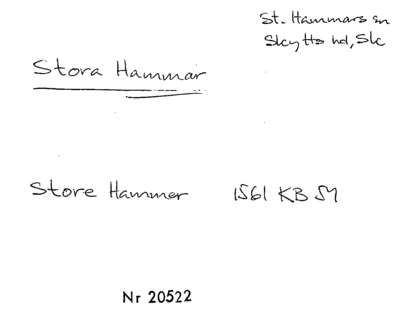 St. Hammars sn
Skytts hd, Sk
Stora Hammar
Store Hammer 1561 KB 54
Nr 20522